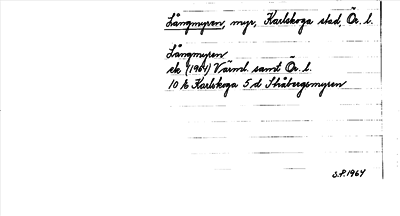 Långmyren, myr, Karlskoga stad, Ör. l.
Långmyren
ek (1964) Värml. samt Ör. l.
10 b Karlskoga 5 d Stråbergsmyren
S.P. 1964